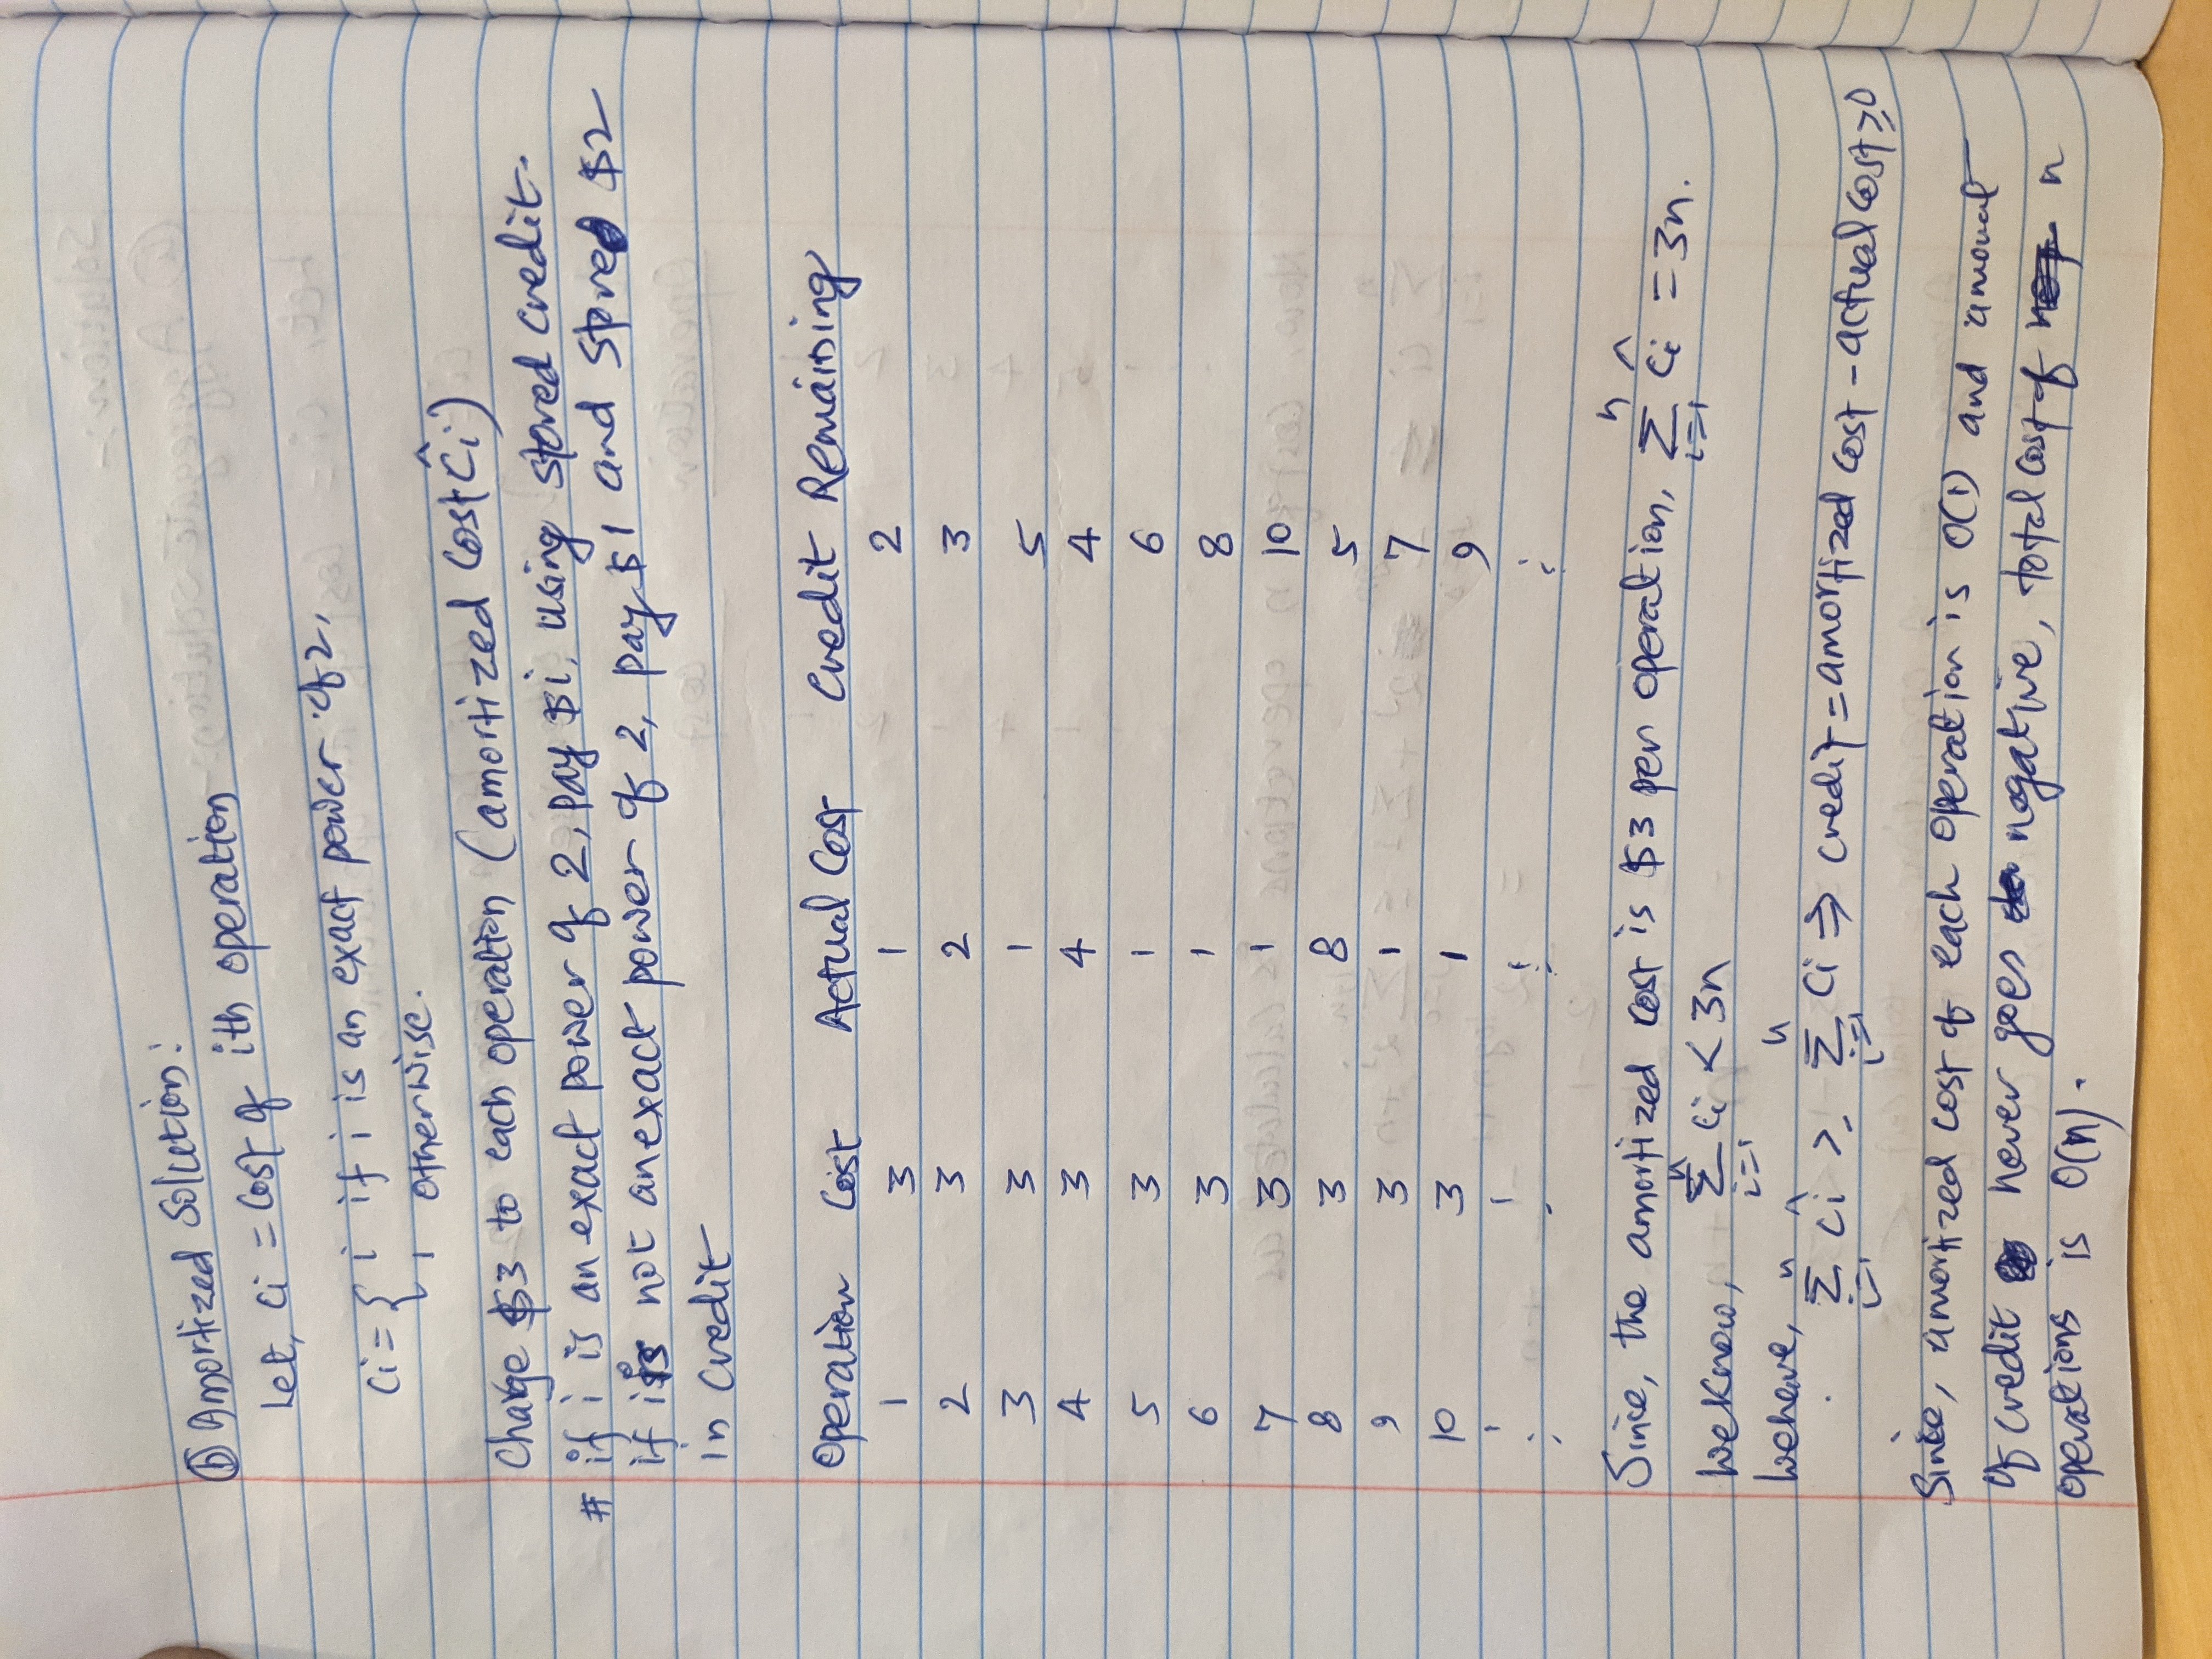 ⓑ Amortized Solution:
Let, ci = cost of ith operation
ci = { i if i is an exact power of 2,
1 otherwise.
Charge $3 to each operation (amortized cost ĉi)
# if i is an exact power of 2, pay $i, using stored credit.
if i is not an exact power of 2, pay $1 and store $2
in credit
Operation Cost Actual Cost Credit Remaining
1 3 1 2
2 3 2 3
3 3 1 5
4 3 4 4
5 3 1 6
6 3 1 8
7 3 1 10
8 3 8 5
9 3 1 7
10 3 1 9
⋮ ⋮ ⋮ ⋮
Since, the amortized cost is $3 per operation, n∑i=1 ĉi = 3n.
We know, n∑i=1 ci < 3n
We have,
n∑i=1 ĉi ≥ n∑i=1 ci ⇒ credit = amortized cost - actual cost ≥ 0
Since, amortized cost of each operation is O(1) and amount
of credit never goes negative, total cost of n
operations is O(n).